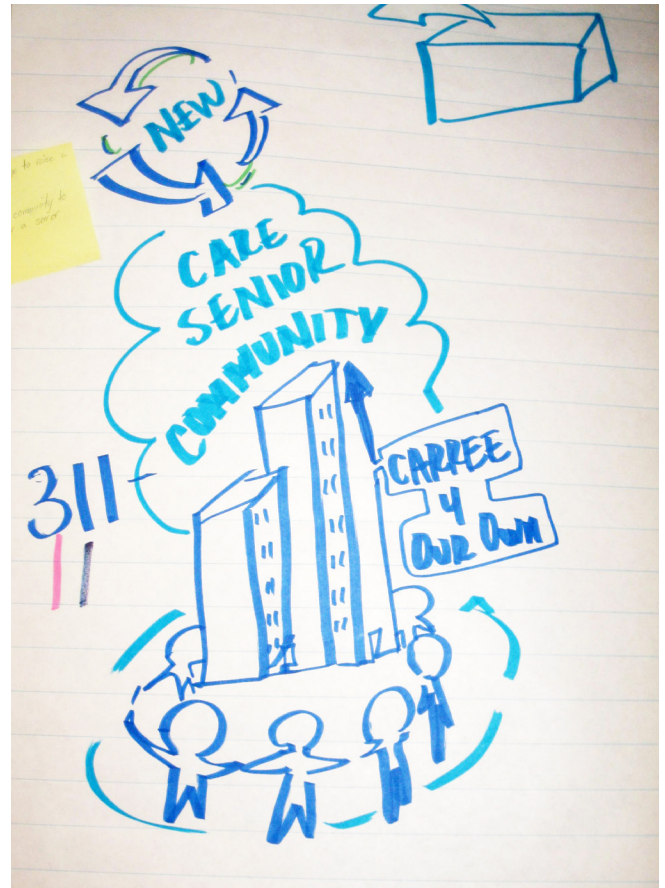 NEW
CARE
SENIOR
COMMUNITY
311
CARREE
4
OUR OWN